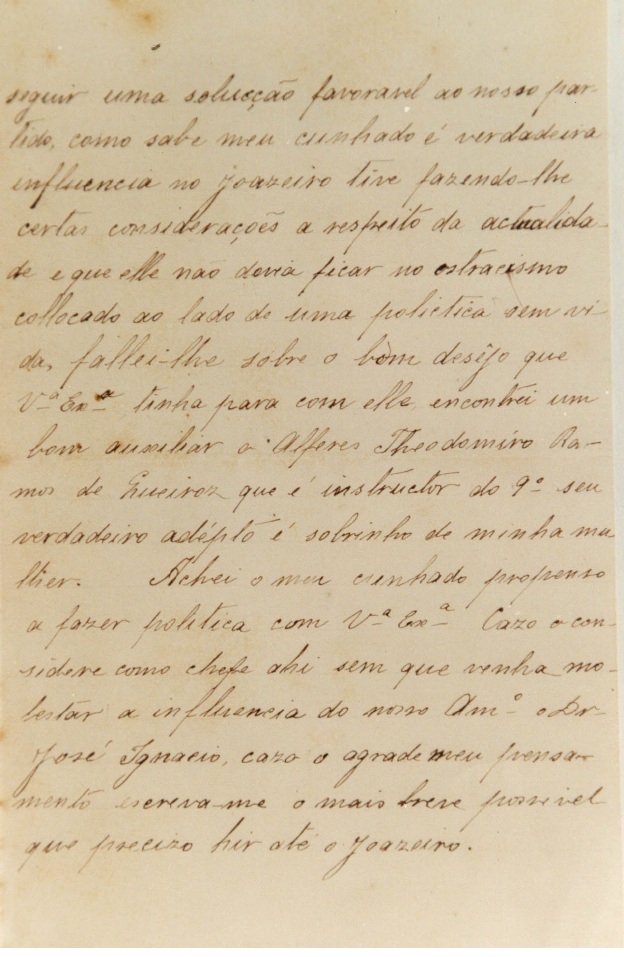 seguir uma solucção favoravel ao nosso par-
tido, como sabe meu cunhado é verdadeira
influencia no Joazeiro tive fazendo-lhe
certas considerações a respeito da actualida-
de e que elle não devia ficar no ostracismo
collocado ao lado de uma polictica sem vi-
da, fallei-lhe sobre o bom desejo que
Vª Exª tinha para com elle encontrei um
bom auxiliar o Alferes Theodomiro Ra-
mos de Queiroz que é instructor do 9º seu
verdadeiro adépto é sobrinho de minha mu
lher. Achei o meu cunhado propenso
a fazer politica com Vª Exª Cazo o con-
sidere como chefe ahi sem que venha mo-
lestar a influencia do nosso Amº o Dr
José Ignacio, cazo o agrade meu pensa-
mento escreva-me o mais breve possivel
que precizo hir até o Joazeiro.